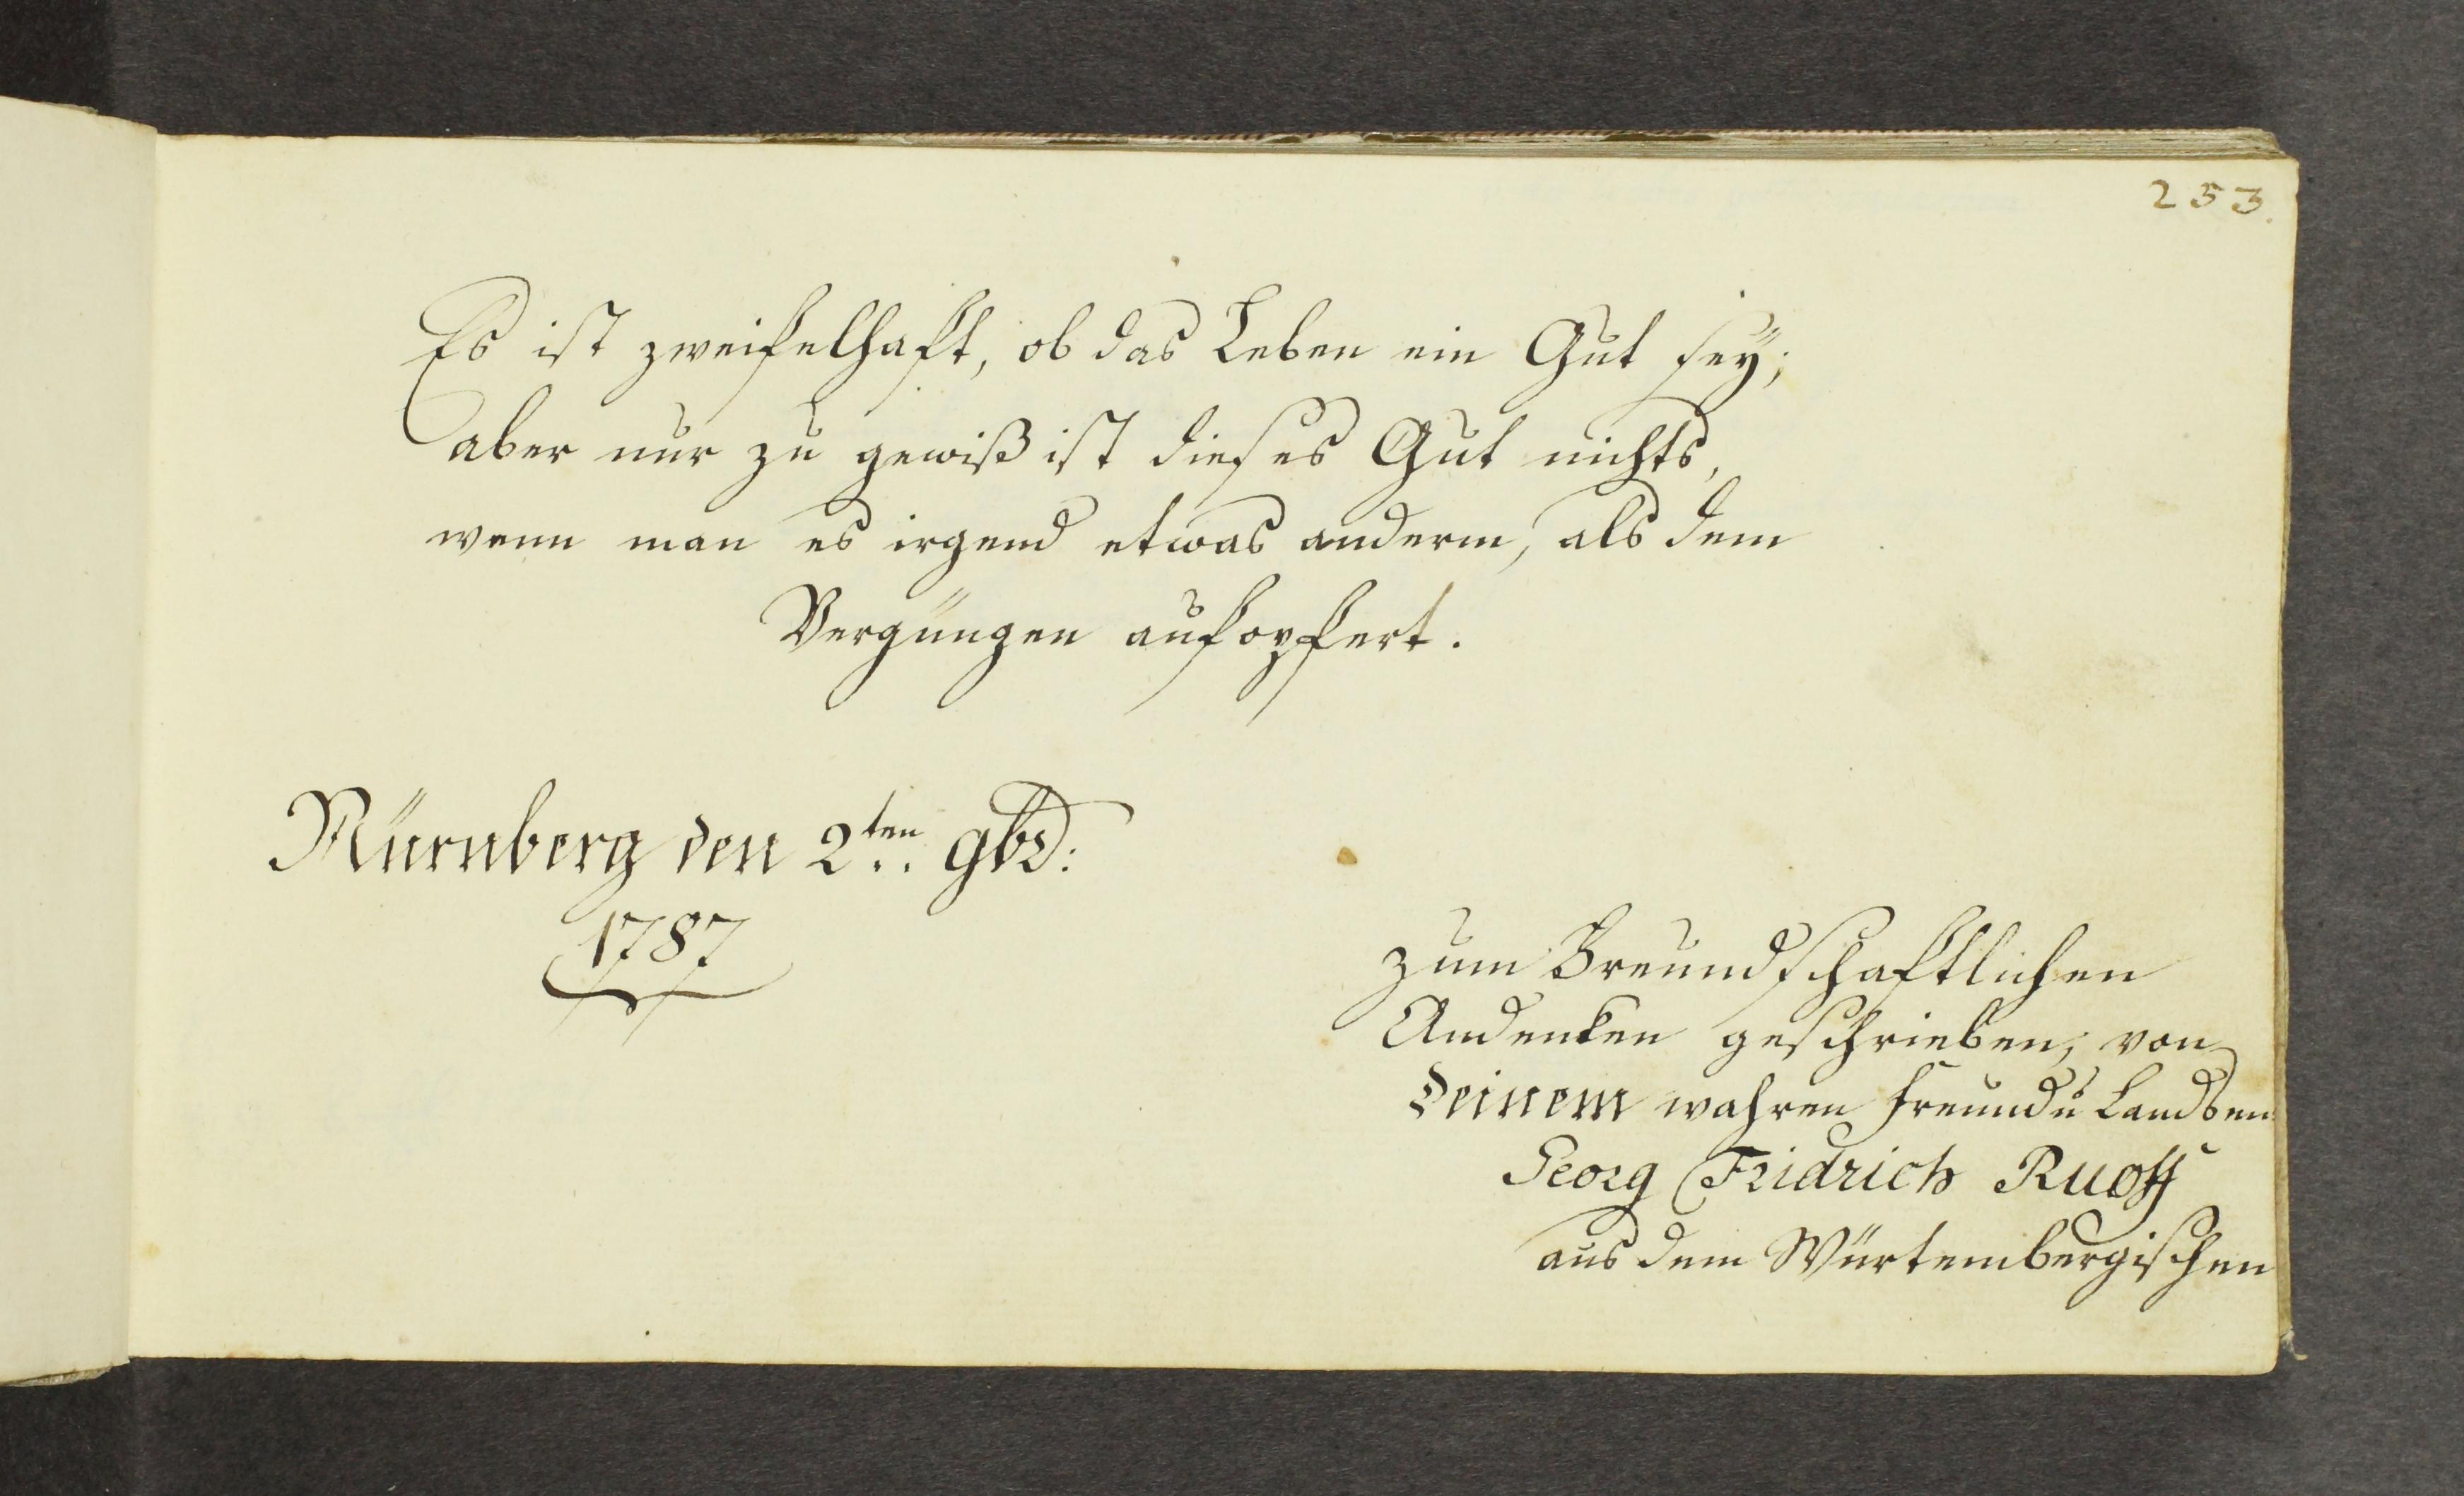 253.
Es ist zweifelhaft, ob das Leben ein Gut seÿ;
aber nur zu gewiß ist dieses Gut nichts,
wenn man es irgend etwas anderm, als dem
Vergüngen aufopfert.
Nürnberg den 2ten 9br:
1787
zum Freundschaftlichen
Andenken geschrieben, von
deinem wahren freund u Landsm:
Georg Fridrich Ruoff
aus dem Würtembergischen